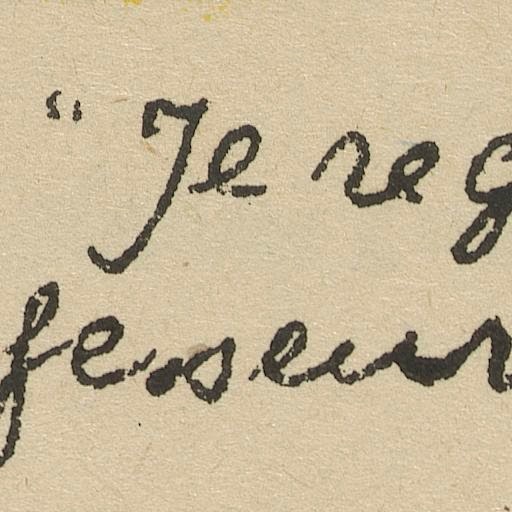 "Je reg
fesseur